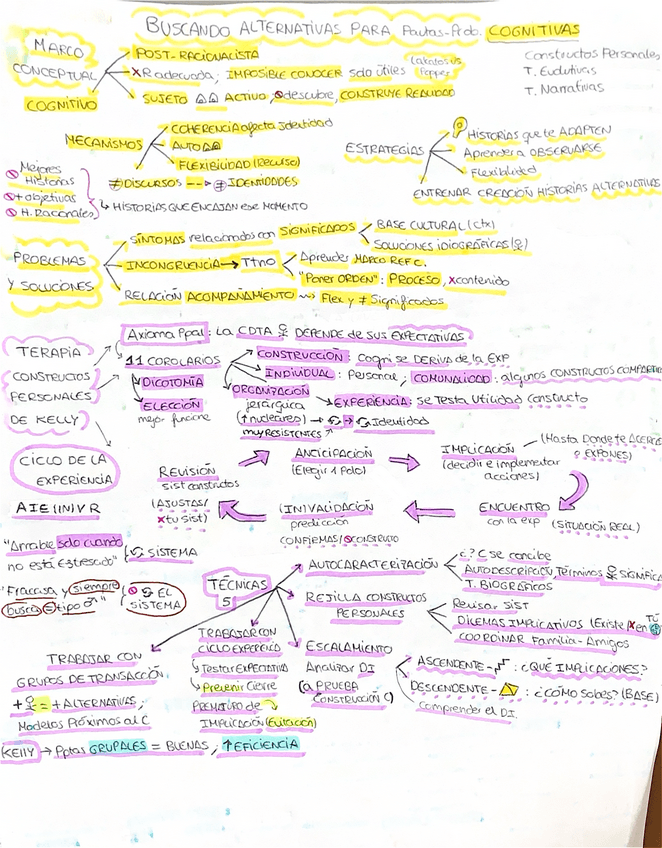 BUSCANDO ALTERNATIVAS PARA Pautas-Prob. COGNITIVAS
MARCO CONCEPTUAL COGNITIVO
POST-RACIONALISTA
Lakatos vs Popper
X R adecuada; IMPOSIBLE CONOCER solo útiles
SUJETO ACTIVO, descubre, CONSTRUYE REALIDAD
Constructos Personales
T. Evolutivas
T. Narrativas
MECANISMOS
COHERENCIA afecta Identidad
AUTO
FLEXIBILIDAD (Recurso)
≠ DISCURSOS --> ≠ IDENTIDADES
Mejores Historias
+ objetivas
H. Racionales
↳ HISTORIAS QUE ENCAJAN ese MOMENTO
ESTRATEGIAS
HISTORIAS que te ADAPTEN
Aprender a OBSERVARSE
Flexibilidad
ENTRENAR CREACIÓN HISTORIAS ALTERNATIVAS
PROBLEMAS Y SOLUCIONES
SÍNTOMAS relacionados con SIGNIFICADOS
BASE CULTURAL (ctx)
SOLUCIONES IDIOGRÁFICAS
INCONGRUENCIA → Ttno
Aprender MARCO REF C.
"Poner ORDEN": PROCESO, X contenido
RELACIÓN ACOMPAÑAMIENTO Flex y ≠ Significados
TERAPIA CONSTRUCTOS PERSONALES DE KELLY
Axioma Ppal: La CDTA DEPENDE de SUS EXPECTATIVAS
11 COROLARIOS
CONSTRUCCIÓN: Cogni se DERIVA de la EXP
INDIVIDUAL: Personal, COMUNALIDAD: algunos CONSTRUCTOS COMPARTI
DICOTOMÍA
ELECCIÓN
mejor funcione
ORGANIZACIÓN
jerárquica
(↑ nucleares) → Identidad
muy RESISTENTES
EXPERIENCIA: Se Testa Utilidad constructo
CICLO DE LA EXPERIENCIA
A I E (IN)V R
ANTICIPACIÓN
(Elegir 1 Polo)
IMPLICACIÓN
(decidir e implementar acciones)
(Hasta Donde te ACERCAS o EXPONES)
ENCUENTRO
con la exp (SITUACIÓN REAL)
(IN)VALIDACIÓN
predicción
CONFIRMAS/ CONSTRUCTO
REVISIÓN
Sist constructos
(AJUSTAS/
X tu sist)
"Arrabie solo cuando no está estresado"
SISTEMA
"Fracasa y siempre busca = tipo"
EL SISTEMA
TÉCNICAS
5
AUTOCARACTERIZACIÓN
¿? C se concibe
AUTODESCRIPCIÓN, Términos SIGNIFICA
T. BIOGRÁFICOS
REJILLA CONSTRUCTOS PERSONALES
Revisar Sist
DILEMAS IMPLICATIVOS (Existe X en
COORDINAR Familia-Amigos
ESCALAMIENTO
Analizar DI
(a PRUEBA CONSTRUCCIÓN C)
ASCENDENTE - : ¿QUÉ IMPLICACIONES?
DESCENDENTE - : ¿CÓMO sabes? (BASE)
Comprender el D.I.
TRABAJAR CON CICLO EXPERIENCIA
Testar EXPECTATIVA
Prevenir Cierre PREMATURO de IMPLICACIÓN (Evitación)
TRABAJAR CON GRUPOS DE TRANSACCIÓN
+ = + ALTERNATIVAS,
Modelos Próximos al C
KELLY → Pptas GRUPALES = BUENAS, ↑ EFICIENCIA